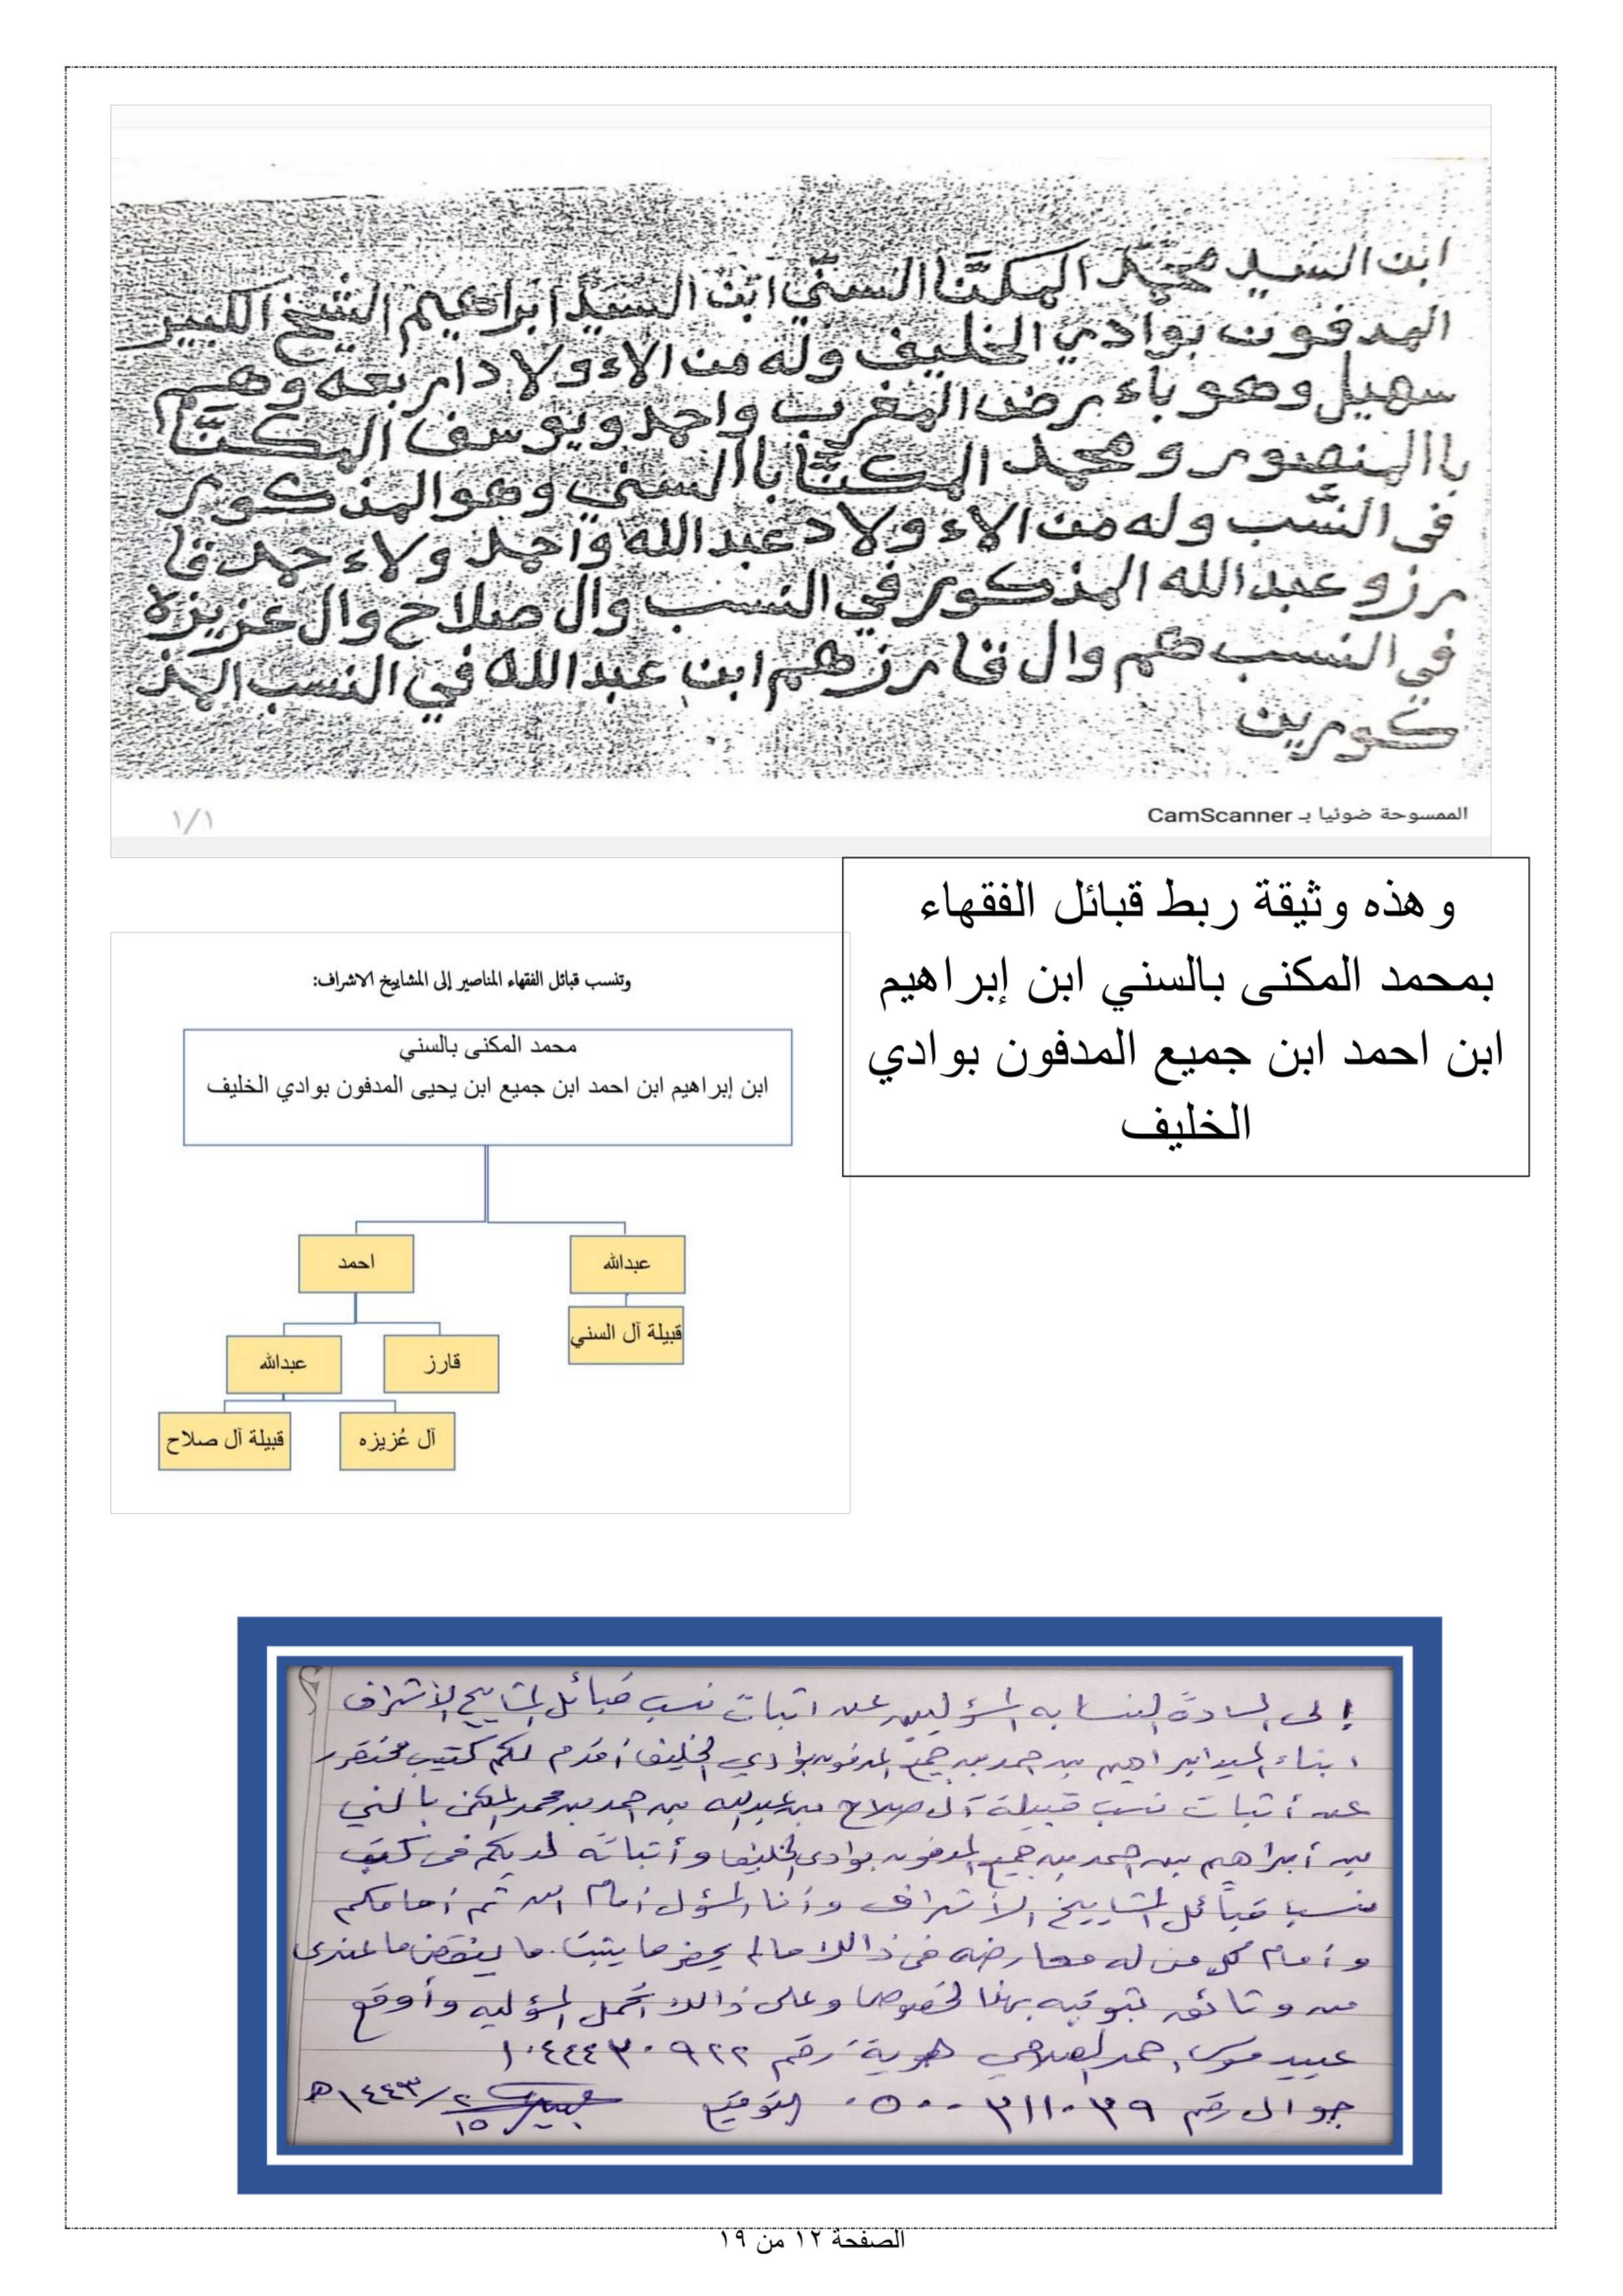 ابن السيد محمد المكنَّا السنّي ابن السيد ابراهيم الشيخ الكبير
المدفون بوادي الخليف وله من الاءولاد اربعه وهم
سهيل وهو باء رض المغرب واحمد ويوسف المكنَّا
باالمنصور ومحمد المكنَّا باالسني وهو المذكور
في النَّسب وله من الاء ولاد عبدالله واحمد ولاء حمد قا
رزو عبدالله المذكور في النسب وال صلاح وال عزيزه
في النسب هم وال قارز هم ابن عبدالله في النسب المذ
كورين
الممسوحة ضوئيا بـ CamScanner
١/١
وهذه وثيقة ربط قبائل الفقهاء
بمحمد المكنى بالسني ابن إبراهيم
ابن احمد ابن جميع المدفون بوادي
الخليف
وتنسب قبائل الفقهاء المناصير إلى المشاييخ الاشراف:
محمد المكنى بالسني
ابن إبراهيم ابن احمد ابن جميع ابن يحيى المدفون بوادي الخليف
عبدالله
احمد
قبيلة آل السني
قارز
عبدالله
آل عُزيزه
قبيلة آل صلاح
إلى السادة النسابه المسؤليين عن اتبات نسب قبائل المشاييخ الأشراف
ابناء السيد ابراهيم بن احمد بن جميع المدفون بوادي الخليف أقدم لكم كتيب مختصر
عن أتبات نسب قبيلة آل صلاح بن عبدالله بن احمد بن محمد المكنى بالسني
بن أبراهيم بن احمد بن جميع المدفون بوادي الخليف وأتباته لديكم في كتب
نسب قبائل المشاييخ الأشراف وأنا المسؤل أمام الله ثم أمامكم
وأمام كل من له معارضه في ذالك مالم يحضر ما يتبت ما ينقض ما عندي
من وتائق بتوقيه بهذا الخصوص وعلى ذالك أتحمل المسؤليه وأوقع
عبيد موسى احمد الصلاحي هوية رقم ١٠٤٤٤٣٠٩٢٢
جوال رقم ٠٥٠٠٣١١٠٣٩ التوقيع ١٥/٢/١٤٤٣هـ
الصفحة ١٢ من ١٩